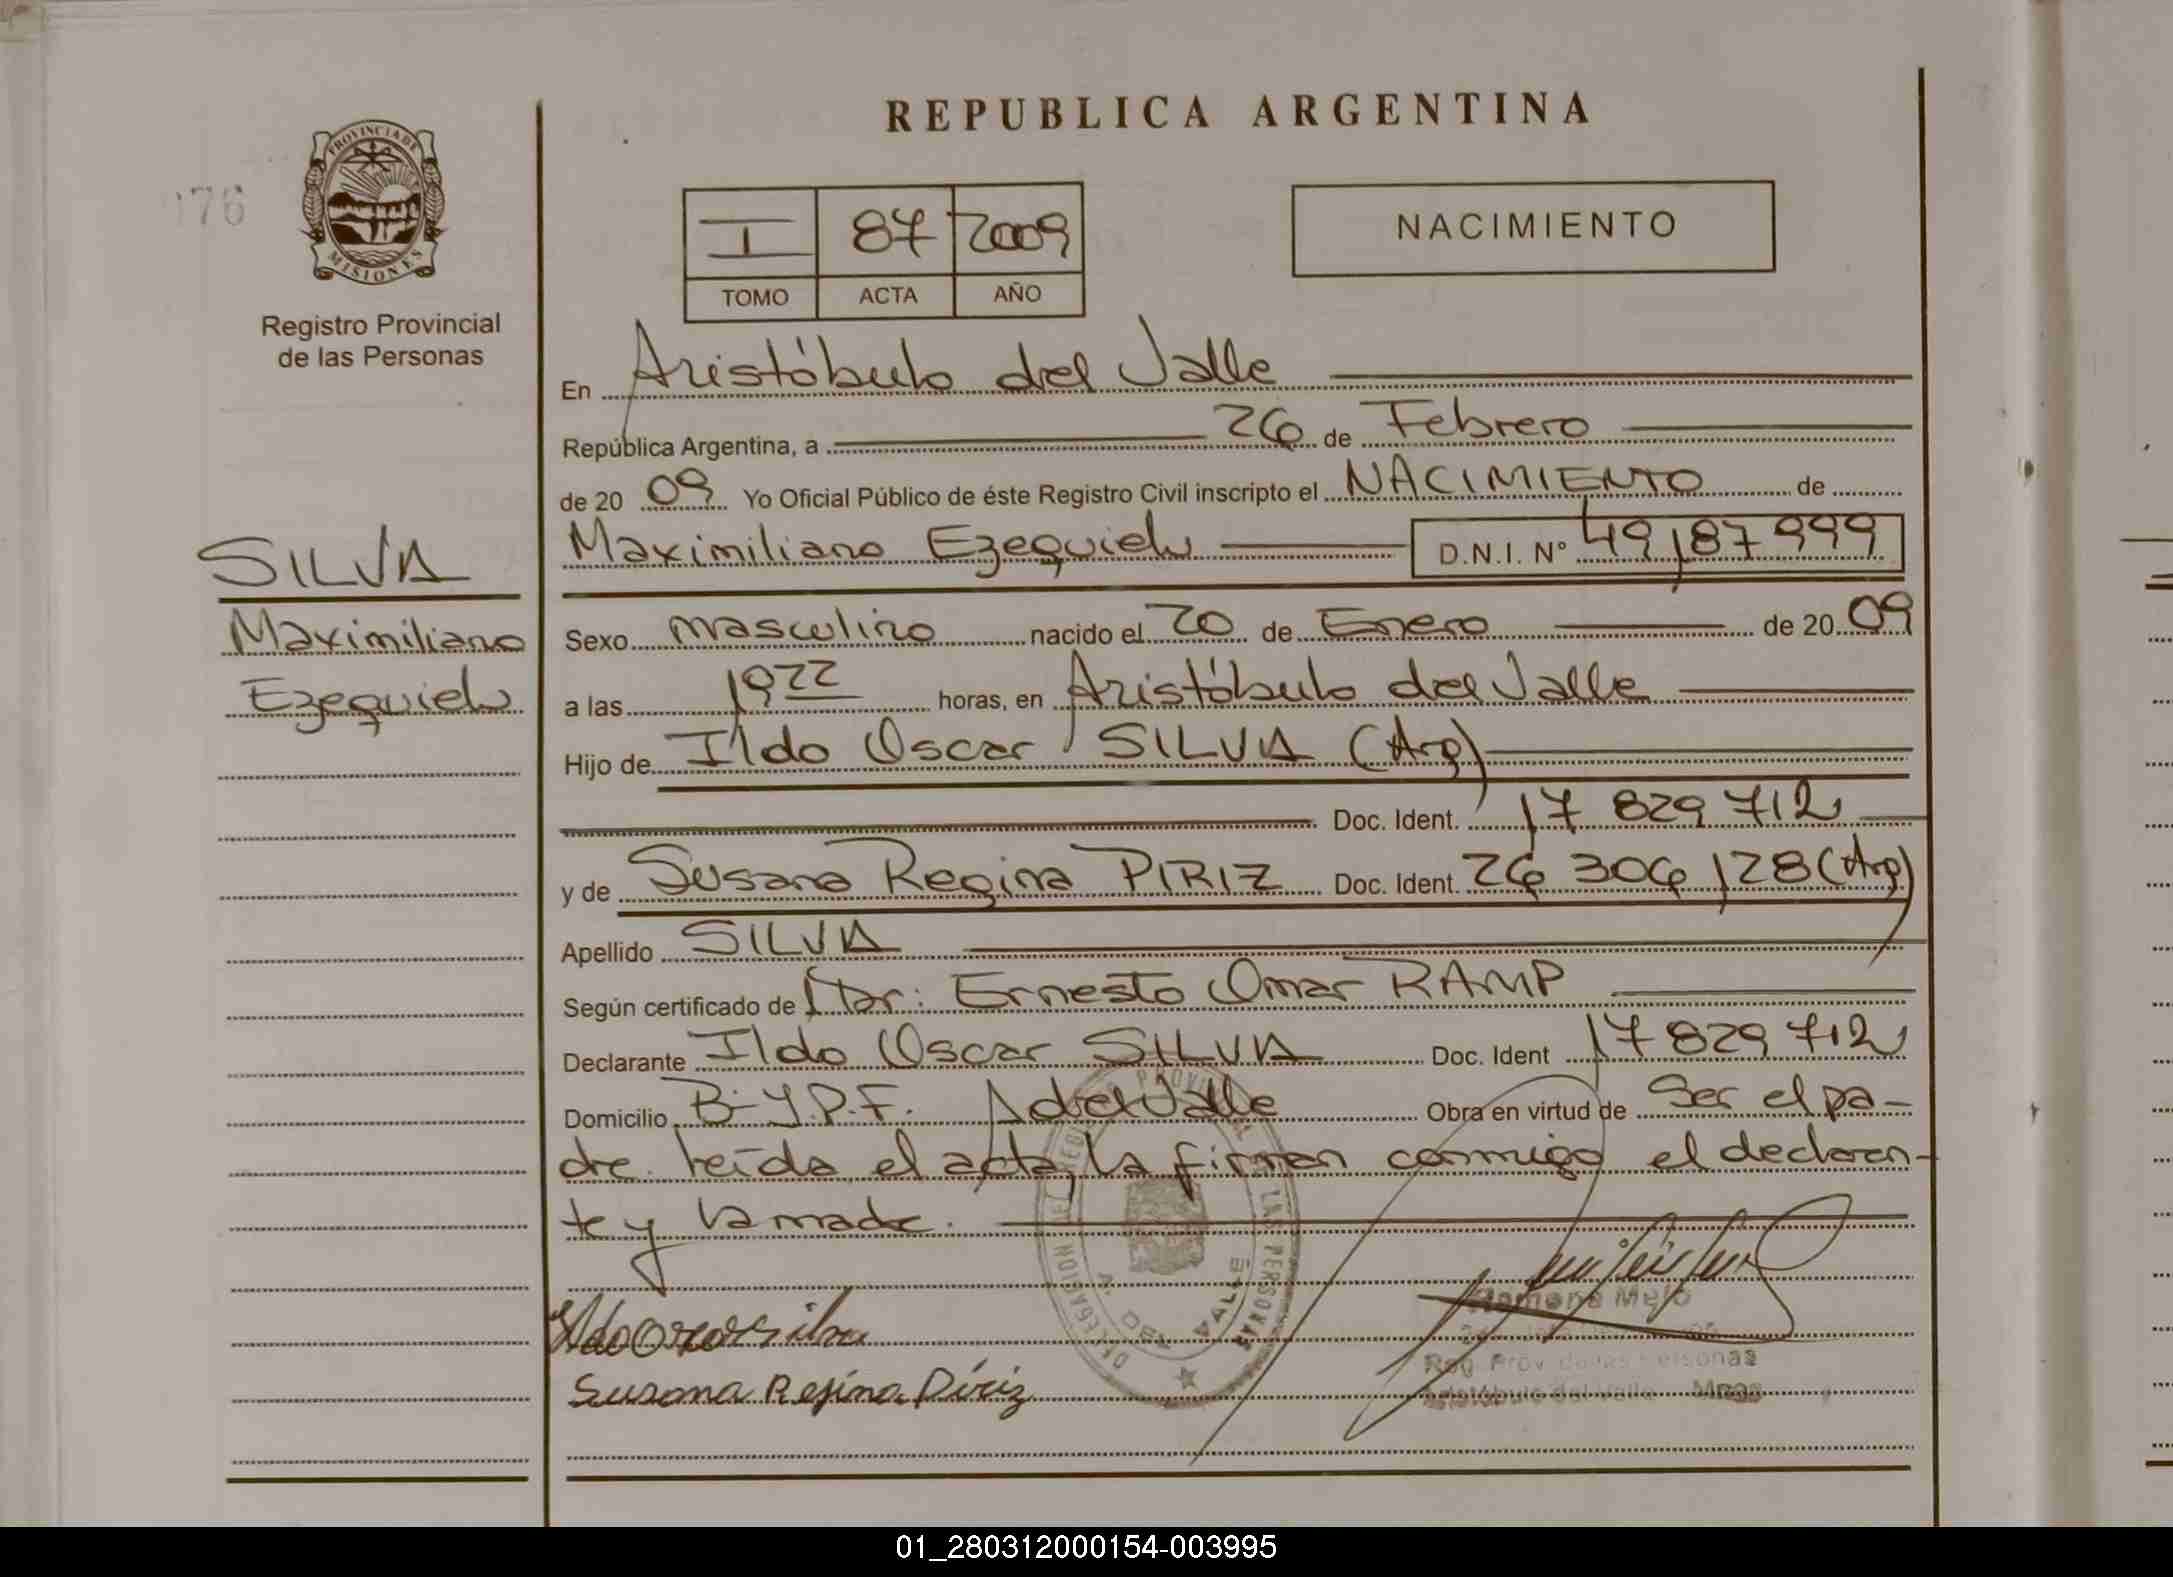 REPUBLICA ARGENTINA
076
PROVINCIA DE
MISIONES
Registro Provincial
de las Personas
I 87 2009
TOMO ACTA AÑO
NACIMIENTO
En Aristóbulo del Valle
República Argentina, a 26 de Febrero
de 20 09 Yo Oficial Público de éste Registro Civil inscripto el NACIMIENTO de
Maximiliano Ezequiel D.N.I. Nº 49187999
SILVA
Maximiliano
Ezequiel
Sexo masculino nacido el 20 de Enero de 20 09
a las 19 22 horas, en Aristóbulo del Valle
Hijo de Ildo Oscar SILVA (Arg)
Doc. Ident. 17 829 712
y de Susana Regina PIRIZ Doc. Ident. 26 306 128 (Arg)
Apellido SILVA
Según certificado de Dr: Ernesto Omar RAMP
Declarante Ildo Oscar SILVA Doc. Ident 17 829 712
Domicilio B-Y.P.F. A del Valle Obra en virtud de Ser el pa-
dre. leída el acta, la firman conmigo el declaran-
te y la madre.
DELEGACION DEL REGISTRO PROVINCIAL LAS PERSONAS
A. DEL VALLE
Ildo Oscar Silva
Susana Regina Piriz
Ramona Melo
Reg. Prov. de las Personas
Aristóbulo del Valle Mnes
01_280312000154-003995